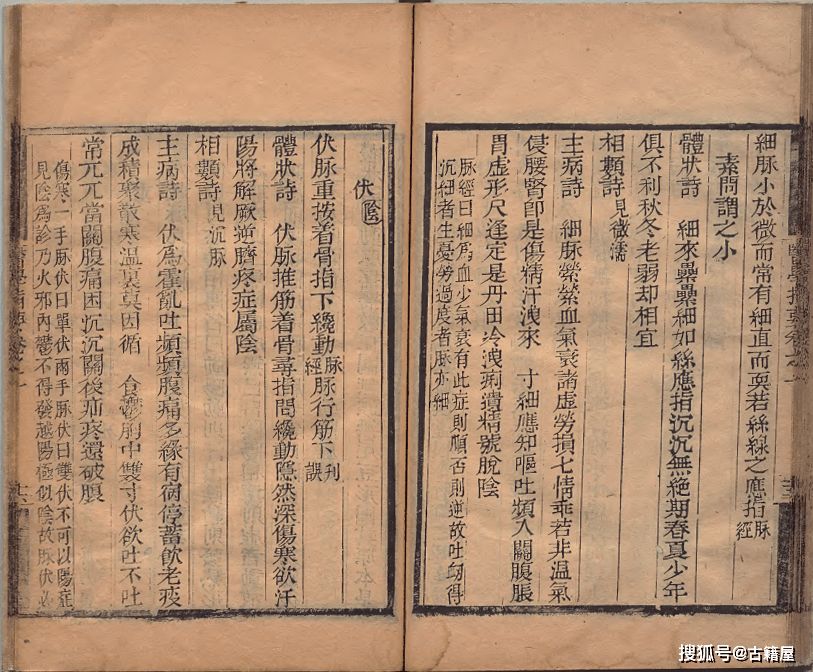 細脉小於微而常有細直而耎若絲線之應指脉經
素問謂之小
體狀詩 細來纍纍細如絲應指沉沉無絶期春夏少年
俱不利秋冬老弱却相宜
相類詩見微濡
主病詩 細脉縈縈血氣衰諸虛勞損七情乖若非温氣
侵腰腎卽是傷精汗洩來 寸細應知嘔吐頻入關腹脹
胃虛形尺逢定是丹田冷洩痢遺精號脫陰
脉經曰細爲血少氣衰有此症則順否則逆故吐衂得
沉細者生憂勞過度者脉亦細
伏陰
伏脉重按着骨指下纔動脉經脉行筋下刊誤
體狀詩 伏脉推筋着骨尋指間纔動隱然深傷寒欲汗
陽將解厥逆臍疼症屬陰
相類詩見沉脉
主病詩 伏爲霍亂吐頻頻腹痛多緣宿停蓄飲老痰
成積聚散寒温裏莫因循 食鬱胸中雙寸伏欲吐不吐
常兀兀當關腹痛困沉沉關後疝疼還破腹
傷寒一手脉伏曰單伏兩手脉伏曰雙伏不可以陽症
見陰爲診乃火邪內鬱不得發越陽極似陰故脉伏必
搜狐号@古籍屋